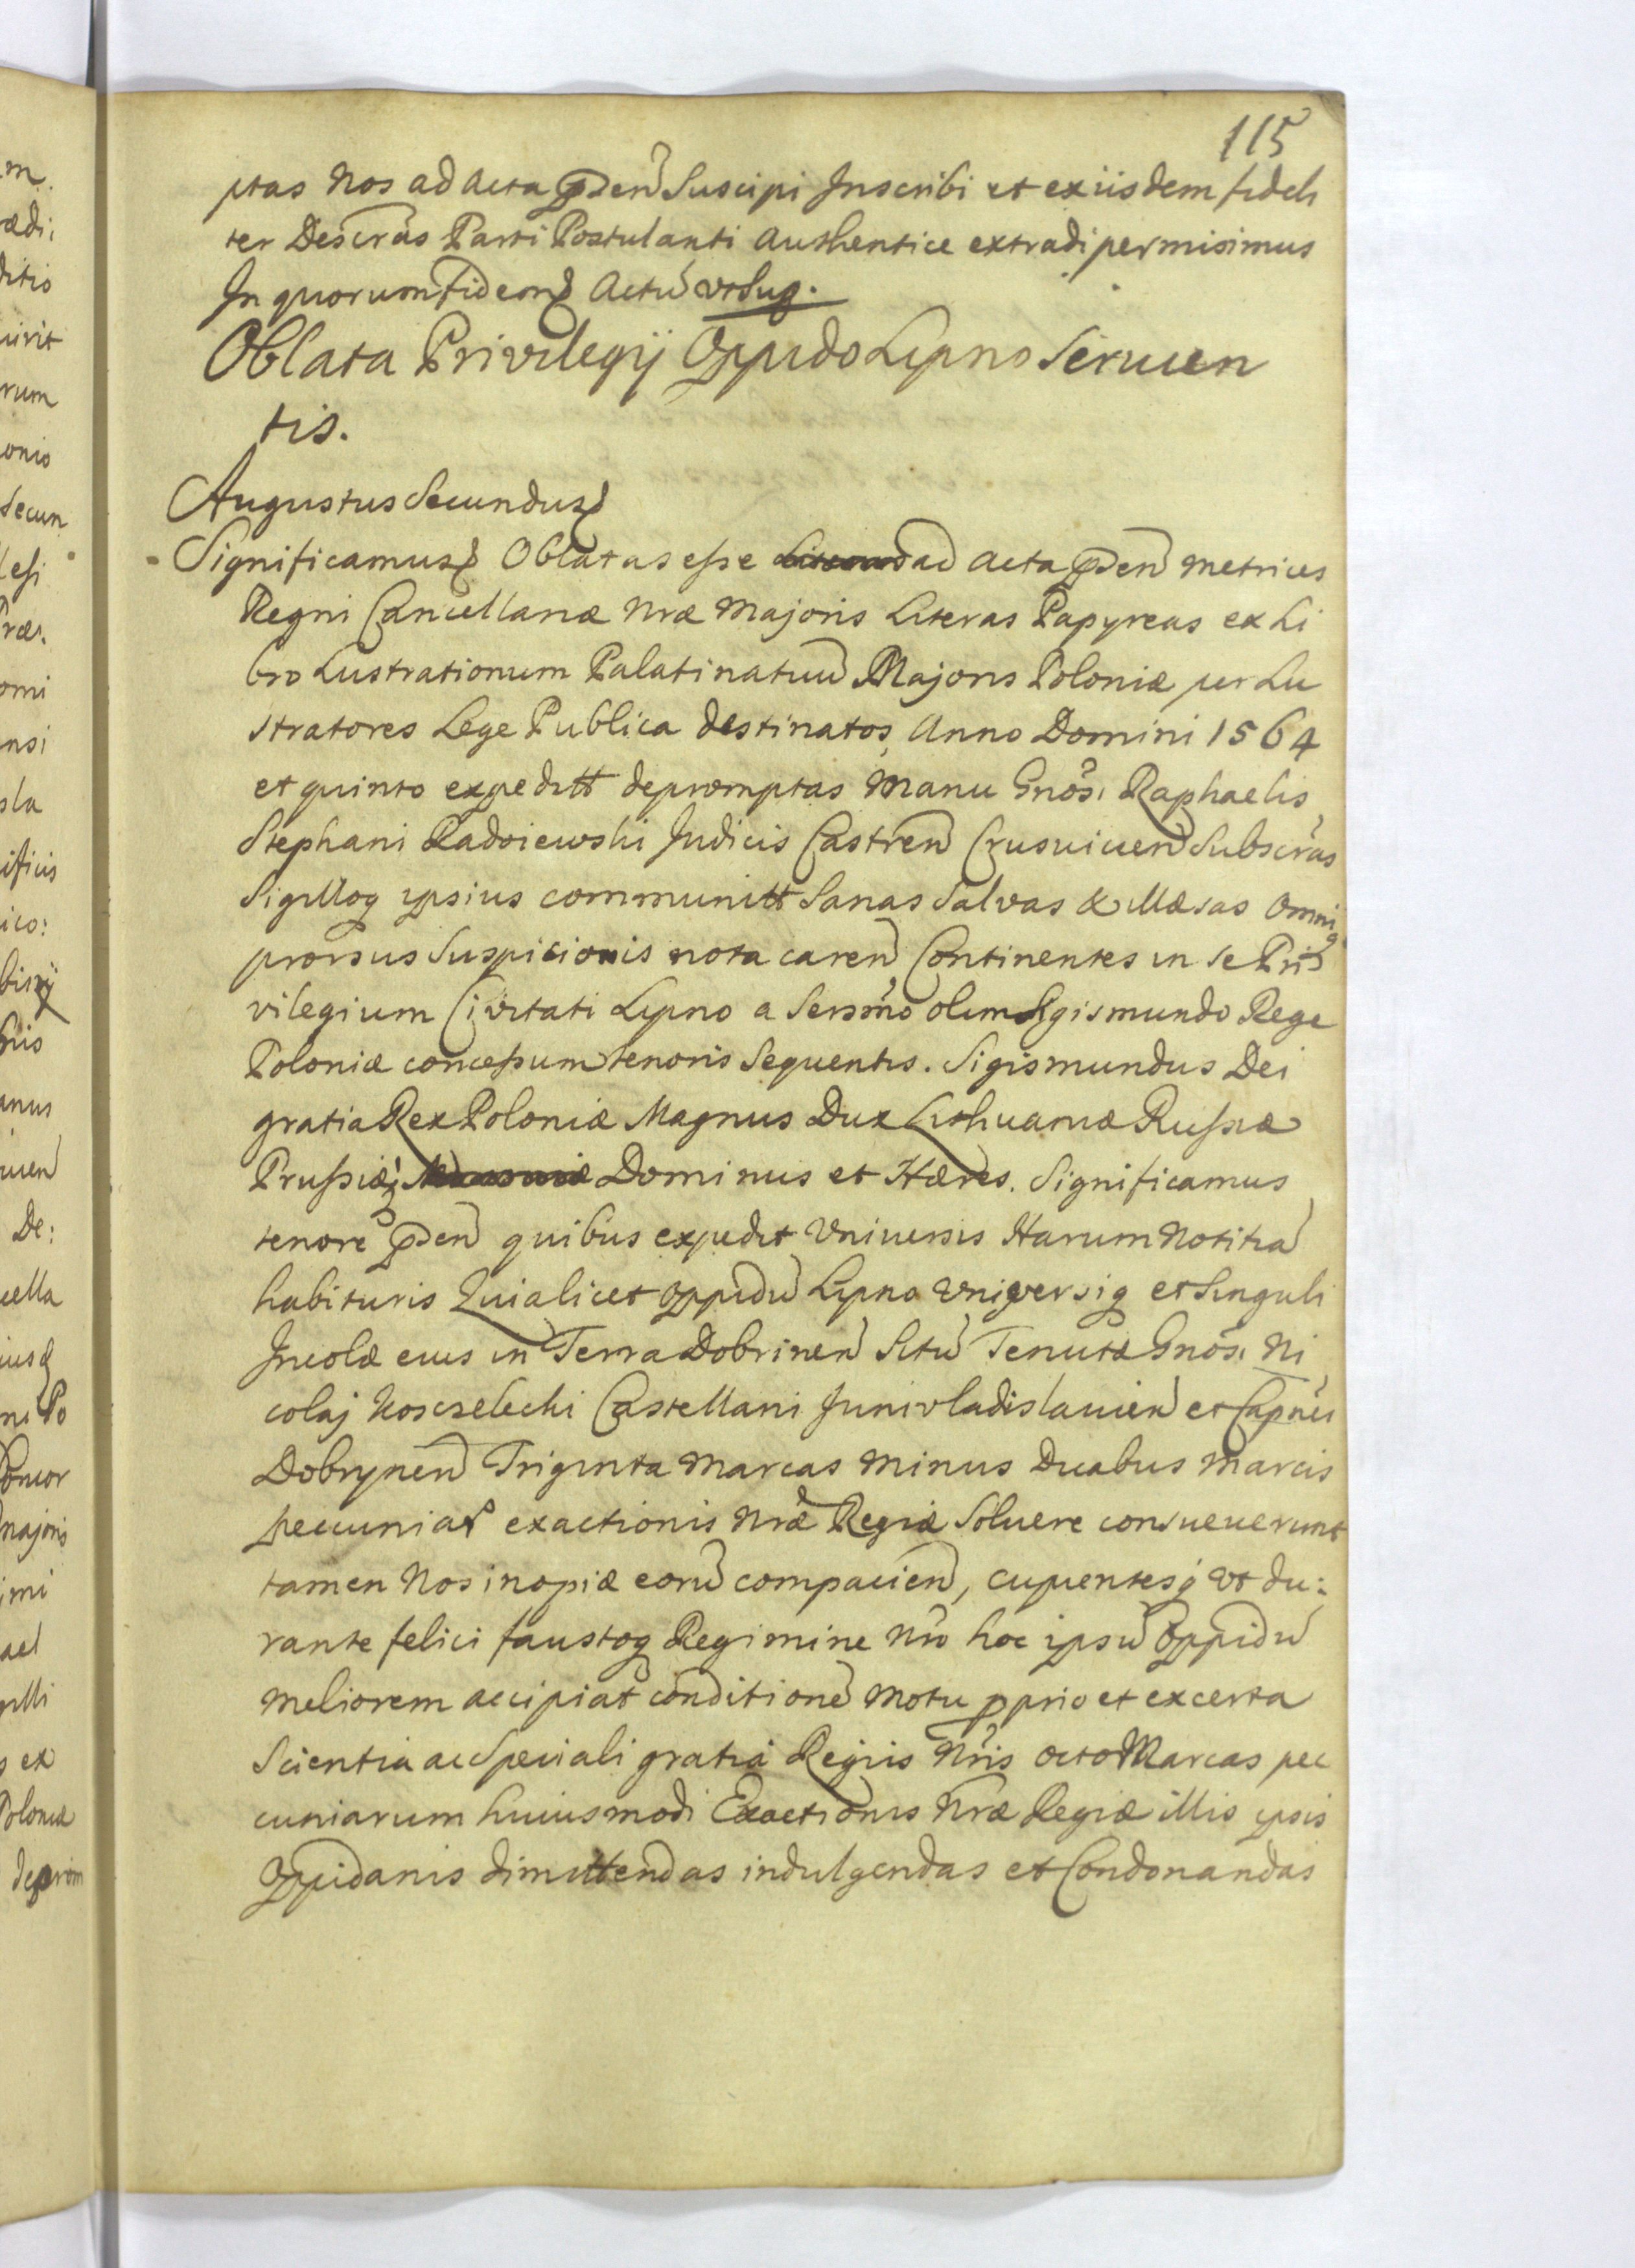 115
ptas Nos ad Acta p̃den Suscipi Inscribi et ex iisdem fideli
ter Descr̃as Parti Postulanti Authentice extradi permisimus
In quorum Fidem Actũ vt Sup.
Oblata Privilegij Oppido Lypno Seruien
tis.
Augustus Secundus
Significamus Oblatas esse ad Acta p̃den Metrices
Regni Cancellariæ Nr̃æ Majoris Literas Papyreas ex Li
bro Lustrationum Palatinatuũ Majoris Poloniæ per Lu
stratores Lege Publica destinatos Anno Domini 1564
et quinto expeditt depromptas Manu Gnõsi Raphaelis
Stephani Radoiewski Judicis Castren Crusuicien Subscr̃as
Sigilloq ipsius communitt Sanas Salvas & Illæsas omniq
prorsus Suspicionis nota caren Continentes in se Pri
vilegium Civitati Lypno a Serṽmo olim Sigismundo Rege
Poloniæ concessum tenoris Sequentis. Sigismundus Dei
gratia Rex Poloniæ Magnus Dux Lithuaniæ Russiæ
Prussiæ Dominus et Hæres. Significamus
tenore p̃den quibus expedit Vniuersis Harum Notitiã
habituris Quia licet Oppidũ Lypno Vniversiq et Singuli
Incolæ eius in Terra Dobrinen Sitũ Tenutæ Gnõsi Ni
colaj Koscselecki Castellani Junivladislauien et Capnẽi
Dobrynen Triginta Marcas Minus Duabus Marcis
pecuniar exactionis Nr̃æ Regiæ Soluere consueuerunt
tamen Nos inopiæ eorũ compacien, cupientesq vt du:
rante felici faustoq Regimine Nr̃o hoc ipsũ Oppidũ
Meliorem accipiat conditionẽ Motu pprio et ex certa
Scientia ac Speciali gratia Regiis Nr̃is octo Marcas pec
cuniarum huiusmodi Exactionis Nr̃æ Regiæ illis ipsis
Oppidanis dimittendas indulgendas et Condonandas